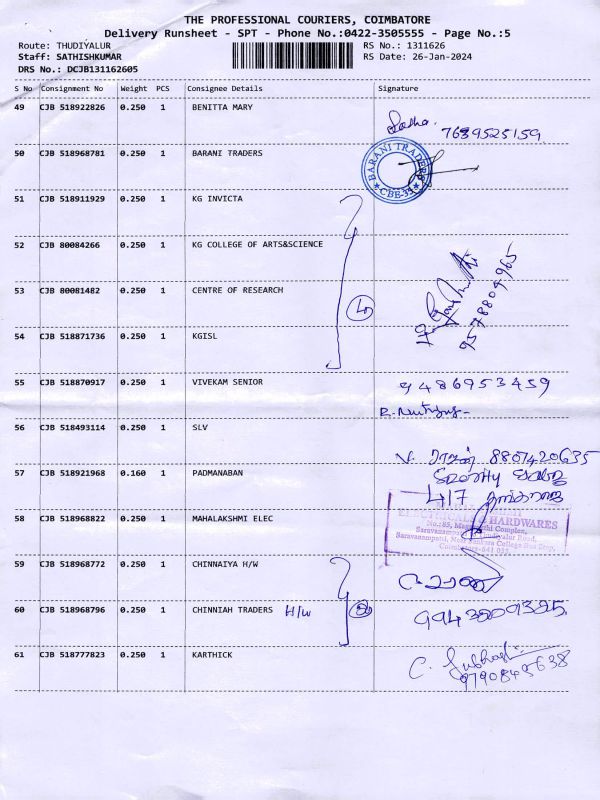 THE PROFESSIONAL COURIERS, COIMBATORE
Delivery Runsheet - SPT - Phone No.:0422-3505555 - Page No.:5
Route: THUDIYALUR RS No.: 1311626
Staff: SATHISHKUMAR RS Date: 26-Jan-2024
DRS No.: DCJB131162605
S No Consignment No Weight PCS Consignee Details Signature
49 CJB 518922826 0.250 1 BENITTA MARY
7639525159
50 CJB 518968781 0.250 1 BARANI TRADERS
BARANI TRADERS
CBE-35
51 CJB 518911929 0.250 1 KG INVICTA
52 CJB 80084266 0.250 1 KG COLLEGE OF ARTS&SCIENCE
53 CJB 80081482 0.250 1 CENTRE OF RESEARCH
4
9578804965
54 CJB 518871736 0.250 1 KGISL
55 CJB 518870917 0.250 1 VIVEKAM SENIOR
9486953459
56 CJB 518493114 0.250 1 SLV
V. 8807420635
57 CJB 518921968 0.160 1 PADMANABAN
417
58 CJB 518968822 0.250 1 MAHALAKSHMI ELEC
& HARDWARES
59 CJB 518968772 0.250 1 CHINNAIYA H/W
60 CJB 518968796 0.250 1 CHINNIAH TRADERS H/W 2
61 CJB 518777823 0.250 1 KARTHICK
9790845638